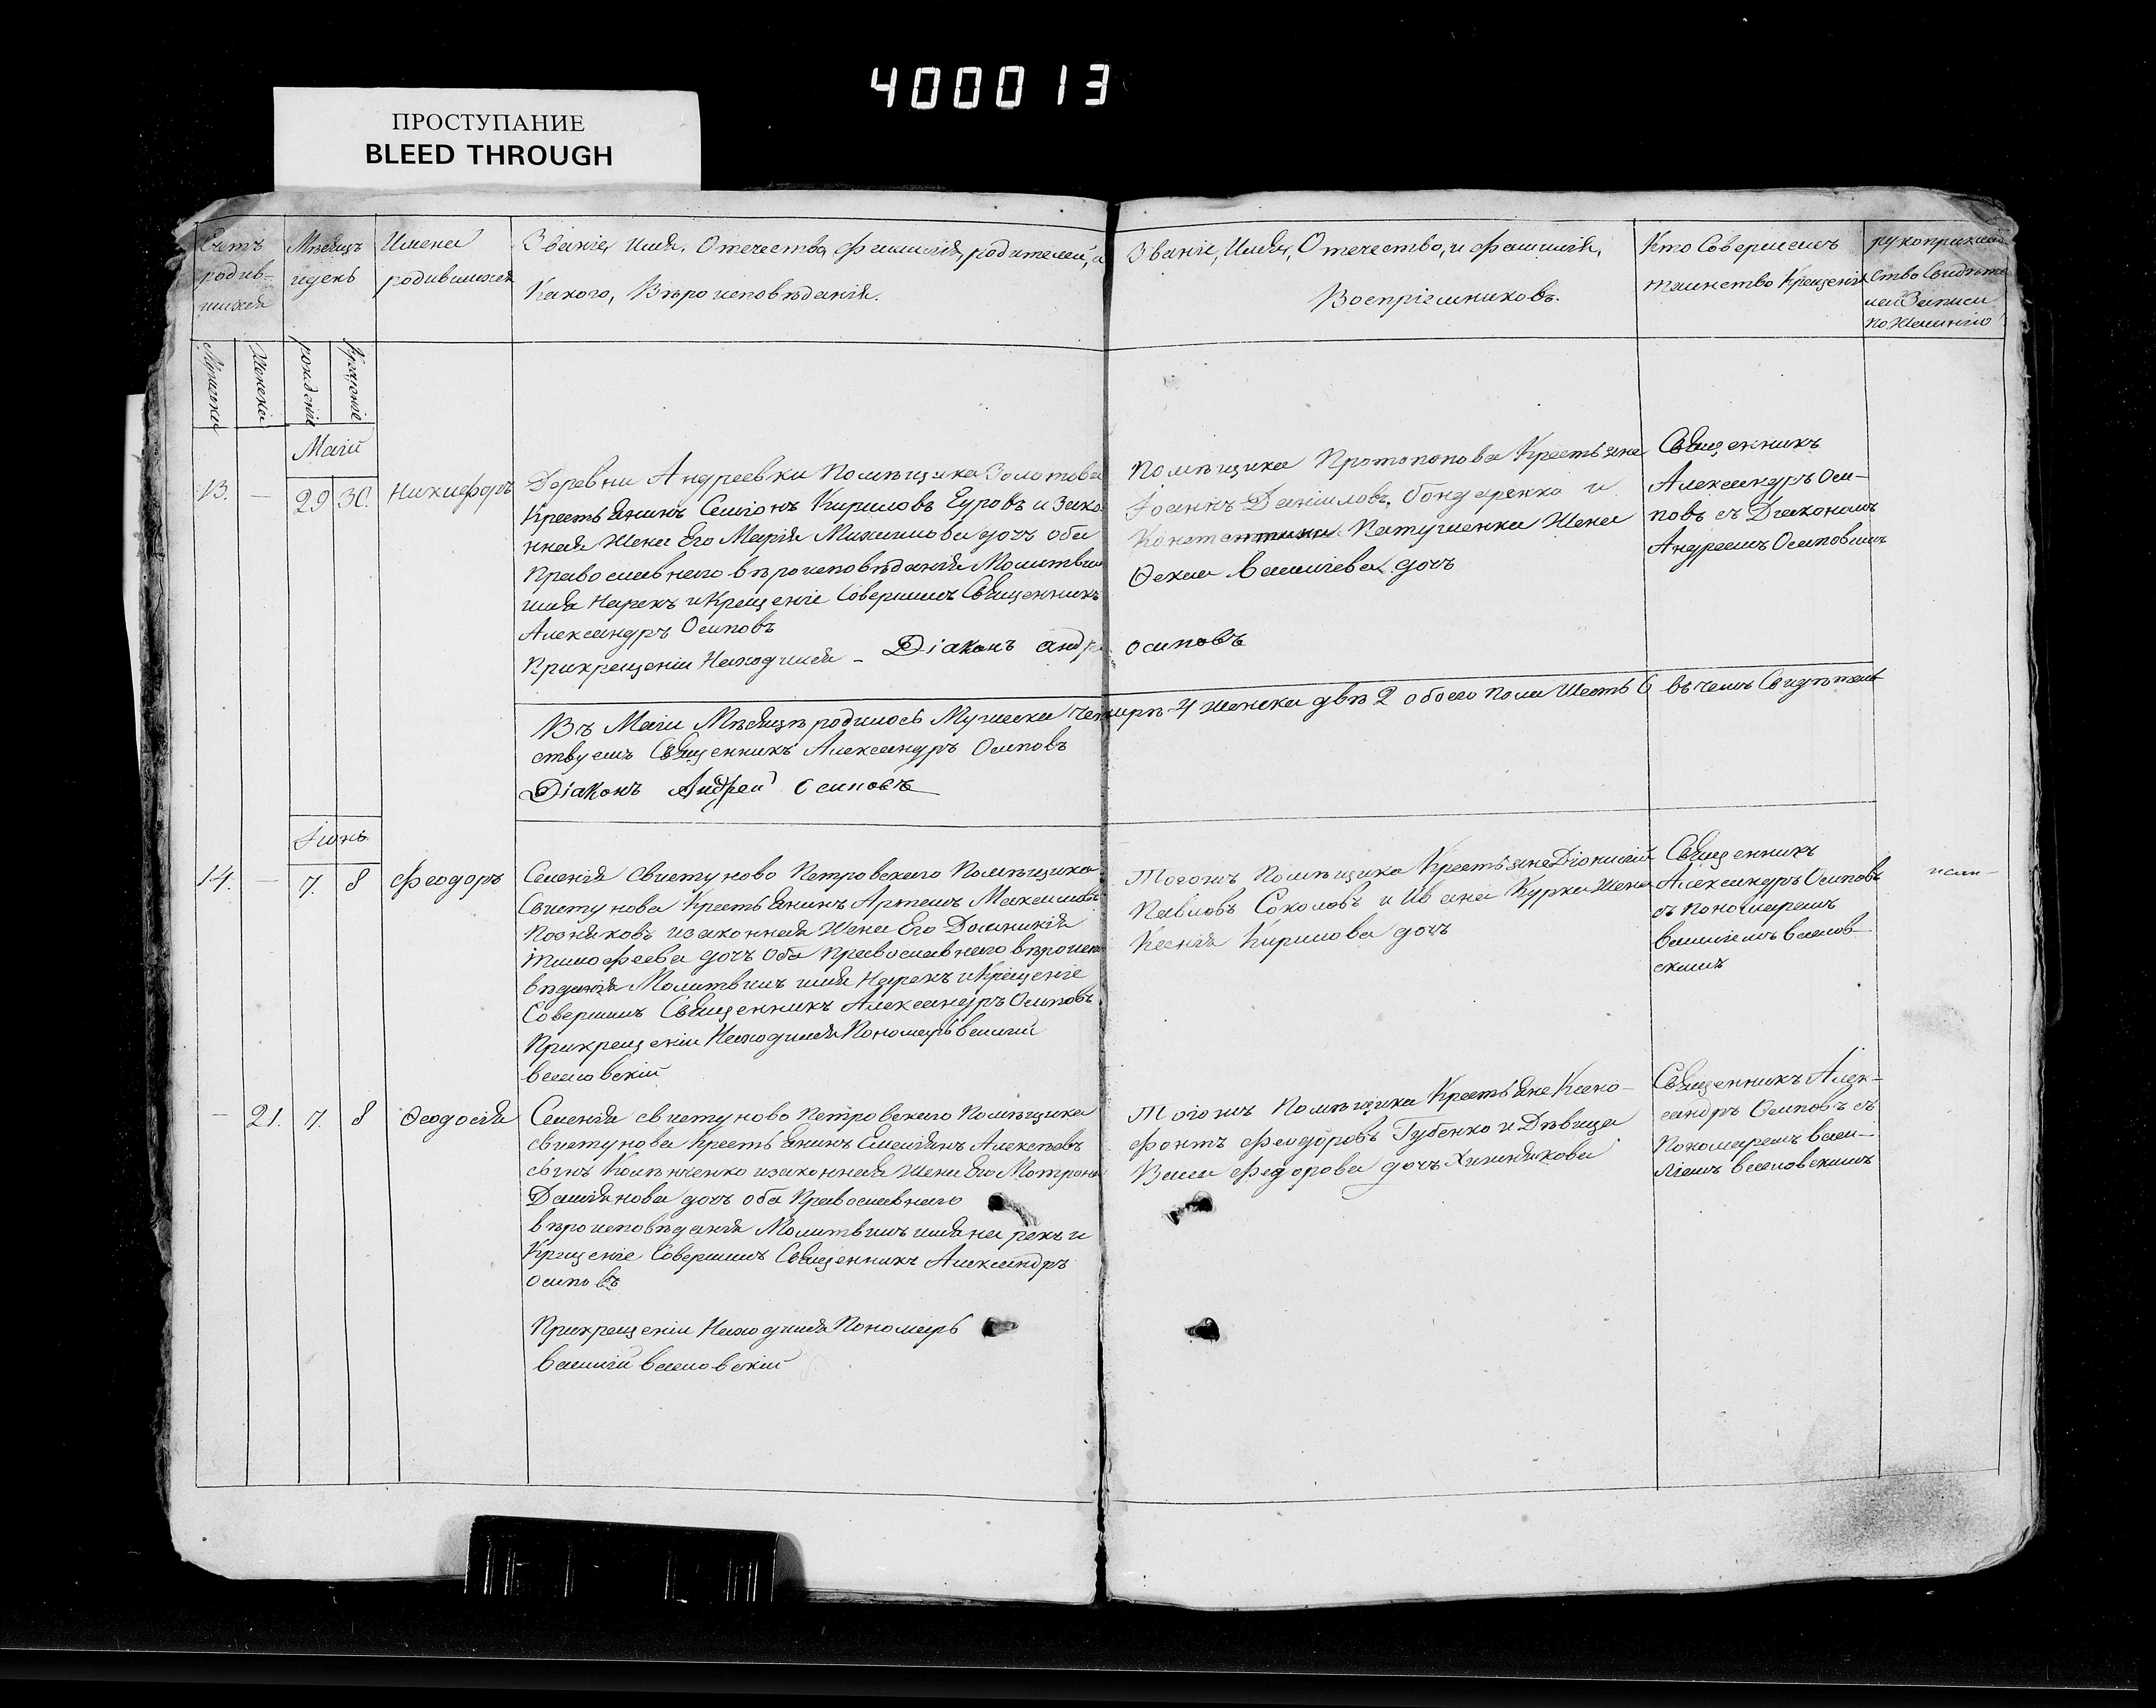 400013
ПРОСТУПАНИЕ
BLEED THROUGH
Счетъ
родив-
шихся
Мѣсяцъ
и день
Имена
родившихся
Званіе, имя, Отечество, Фамилія, родителей, и
Какого, Вѣроисповѣданія.
Званіе, Имя, Отечество, и Фамилія,
Воспріемниковъ.
Кто Совершалъ
таинство Крещенія
рукоприклад
ство Свидѣте
лей Записи
по Желанію
Мужеска
Женска
рожденіе
крещеніе
Маій
13.
—
29
30.
Никифоръ
Деревни Андреевки Помѣщика Золотова
Крестьянинъ Симіонъ Кириловъ Еуровъ и Зако
нная Жена Его Марія Михаилова дочь оба
Православнаго вѣроисповѣданія Молитвилъ
имя Нарекъ и Крещеніе Совершилъ Священникъ
Александръ Осиповъ
При крещеніи Находился – Діаконъ андр осиповъ
Помѣщика Протопопова Крестьяне
Іоаннъ Даніиловъ, бондаренко и
Константина Патушенка Жена
Ѳекла Василіева дочь
Священникъ
Александръ Оси-
повъ съ Діакономъ
Андреемъ Осиповымъ
Въ Маіи Мѣсяцѣ родилось Мужска Четырѣ 4 женска двѣ 2 обоего пола Шесть 6 въ чемъ Свидѣтель
ствуемъ Священникъ Александръ Осиповъ
Діаконъ Андрей Осиповъ
Іюнь
14.
—
7.
8
Феодоръ
Селенія Свистуново Петровскаго Помѣщика
Свистунова Крестьянинъ Артемъ Максимовъ
Позняковъ и законная Жена Его Домникія
тимофеева дочь Оба православнаго вѣроиспо
вѣданія Молитвилъ имя Нарекъ и Крещеніе
Совершилъ Священникъ Александръ Осиповъ
При крещеніи Находился Пономарь василій
василовскій
Тогожъ Помѣщика Крестьяне Діонисій
Павловъ Соколовъ и Ивана Курка Жена
Ксенія Кирилова дочь
Священникъ
Александръ Осиповъ
съ Пономаремъ
василіемъ василов-
скимъ
—
21.
7.
8
Ѳеодосія
Селенія свистуново Петровскаго Помѣщика
свистунова Крестьянинъ Емеліанъ Алексѣевъ
сынъ и законная Жена Его Мотрона
Даміанова дочь оба Православнаго
вѣроисповѣданія Молитвилъ имя на рекъ и
Крещеніе Совершилъ Священникъ Александръ
осиповъ
При крещеніи Находился Пономарь
василій василовскій
Тогожъ Помѣщика Крестьяне Ксено-
фонтъ Феодоровъ Губенко и Дѣвица
Васса Федорова дочь Хижнякова
Священникъ Алек-
сандръ Осиповъ съ
Пономаремъ васи-
ліемъ василовскимъ